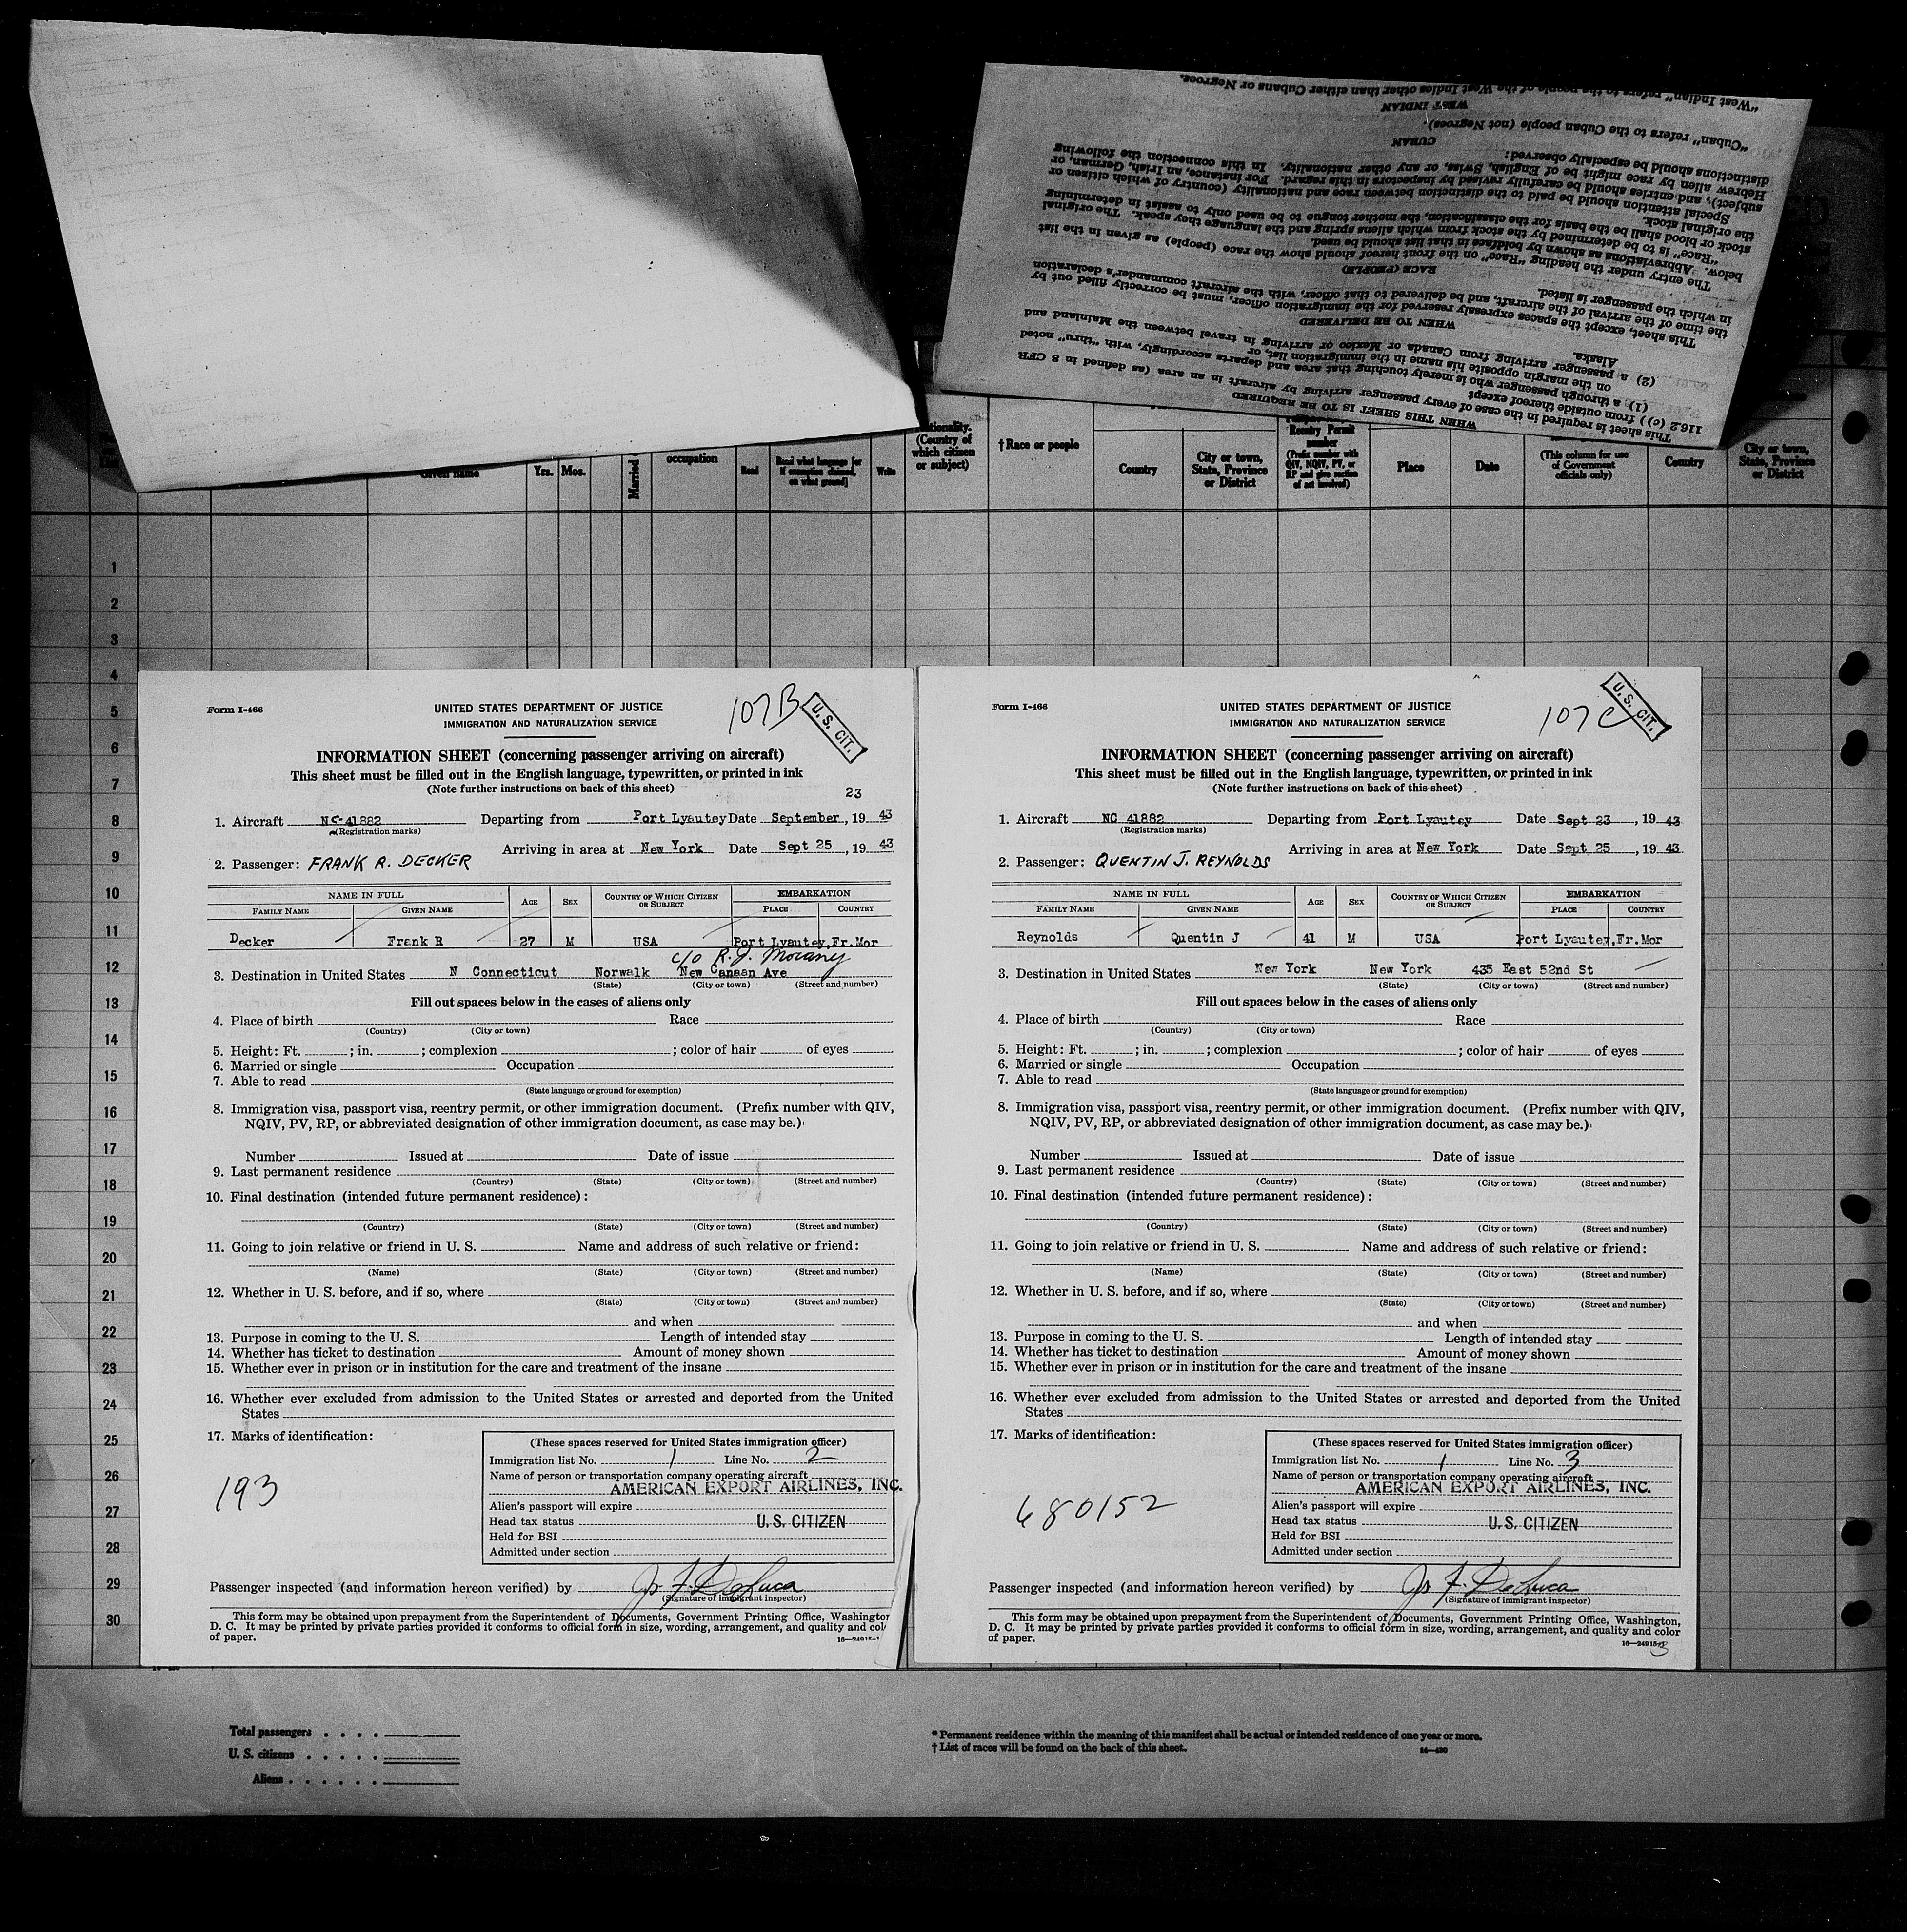 "West Indian" refers to the people of the West Indies other than either Cubans or Negroes.
WEST INDIAN
"Cuban" refers to the Cuban people (not Negroes)
CUBAN
distinctions should be especially observed:
Hebrew alien by race might be of English, Swiss, or any other nationality. In this connection the following
subject), and entries should be carefully revised by inspectors in this regard. For instance, an Irish, German, or
Special attention should be paid to the distinction between race and nationality (country of which citizen or
the original stock.
stock or blood shall be the basis for the classification, the mother tongue to be used only to assist in determining
"Race" is to be determined by the stock from which aliens spring and the language they speak. The original
below. Abbreviations as shown by boldface in that list should be used.
The entry under the heading "Race" on the front hereof should show the race (people) as given in the list
RACE (PEOPLE)
in which the passenger is listed.
the time of the arrival of the aircraft, and be delivered to that officer, with the aircraft commander's declaration
This sheet, except the spaces expressly reserved for the immigration officer, must be correctly filled out by
WHEN TO BE DELIVERED
Alaska.
(2) a passenger arriving from Canada or Mexico or arriving in travel between the Mainland and
on the margin opposite his name in the immigration list, or
(1) a through passenger who is merely touching that area and departs accordingly, with "thru" noted
116.2 (c)) from outside thereof except
This sheet is required in the case of every passenger arriving by aircraft in an area (as defined in 8 CFR
WHEN THIS SHEET IS TO BE REQUIRED
Given name
Yrs. Mos.
Married
occupation
Read
Read what language [or if exemption claimed, on what ground]
Write
(Country of which citizen or subject)
† Race or people
Country
City or town, State, Province or District
Reentry Permit number (Prefix number with QIV, NQIV, PV, or RP and give section of act involved)
Place
Date
(This column for use of Government officials only)
Country
City or town, State, Province or District
1
2
3
4
5
6
7
8
9
10
11
12
13
14
15
16
17
18
19
20
21
22
23
24
25
26
27
28
29
30
Form I-466
UNITED STATES DEPARTMENT OF JUSTICE
IMMIGRATION AND NATURALIZATION SERVICE
107B
U. S. CIT.
INFORMATION SHEET (concerning passenger arriving on aircraft)
This sheet must be filled out in the English language, typewritten, or printed in ink
(Note further instructions on back of this sheet)
23
1. Aircraft NC-41882 Departing from Port Lyautey Date September, 19 43
(Registration marks)
Arriving in area at New York Date Sept 25, 19 43
2. Passenger: FRANK R. DECKER
NAME IN FULL AGE SEX COUNTRY OF WHICH CITIZEN OR SUBJECT EMBARKATION
FAMILY NAME GIVEN NAME PLACE COUNTRY
Decker Frank R 27 M USA Port Lyautey, Fr.Mor
c/o R. J.
3. Destination in United States N Connecticut Norwalk New Canaan Ave
(State) (City or town) (Street and number)
Fill out spaces below in the cases of aliens only
4. Place of birth Race
(Country) (City or town)
5. Height: Ft. ; in. ; complexion ; color of hair of eyes
6. Married or single Occupation
7. Able to read
(State language or ground for exemption)
8. Immigration visa, passport visa, reentry permit, or other immigration document. (Prefix number with QIV,
NQIV, PV, RP, or abbreviated designation of other immigration document, as case may be.)
Number Issued at Date of issue
9. Last permanent residence
(Country) (State) (City or town) (Street and number)
10. Final destination (intended future permanent residence):
(Country) (State) (City or town) (Street and number)
11. Going to join relative or friend in U. S. Name and address of such relative or friend:
(Name) (State) (City or town) (Street and number)
12. Whether in U. S. before, and if so, where
(State) (City or town) (Street and number)
and when
13. Purpose in coming to the U. S. Length of intended stay
14. Whether has ticket to destination Amount of money shown
15. Whether ever in prison or in institution for the care and treatment of the insane
16. Whether ever excluded from admission to the United States or arrested and deported from the United
States
17. Marks of identification:
193
(These spaces reserved for United States immigration officer)
Immigration list No. 1 Line No. 2
Name of person or transportation company operating aircraft
AMERICAN EXPORT AIRLINES, INC.
Alien's passport will expire
Head tax status U. S. CITIZEN
Held for BSI
Admitted under section
Passenger inspected (and information hereon verified) by Jos. F. DeLuca
(Signature of immigrant inspector)
This form may be obtained upon prepayment from the Superintendent of Documents, Government Printing Office, Washington
D. C. It may be printed by private parties provided it conforms to official form in size, wording, arrangement, and quality and col
of paper.
16—24915-1
Form I-466
UNITED STATES DEPARTMENT OF JUSTICE
IMMIGRATION AND NATURALIZATION SERVICE
107C
U. S. CIT.
INFORMATION SHEET (concerning passenger arriving on aircraft)
This sheet must be filled out in the English language, typewritten, or printed in ink
(Note further instructions on back of this sheet)
1. Aircraft NC 41882 Departing from Port Lyautey Date Sept 23, 19 43
(Registration marks)
Arriving in area at New York Date Sept 25, 19 43
2. Passenger: QUENTIN J. REYNOLDS
NAME IN FULL AGE SEX COUNTRY OF WHICH CITIZEN OR SUBJECT EMBARKATION
FAMILY NAME GIVEN NAME PLACE COUNTRY
Reynolds Quentin J 41 M USA Port Lyautey, Fr.Mor
3. Destination in United States New York New York 435 East 52nd St
(State) (City or town) (Street and number)
Fill out spaces below in the cases of aliens only
4. Place of birth Race
(Country) (City or town)
5. Height: Ft. ; in. ; complexion ; color of hair of eyes
6. Married or single Occupation
7. Able to read
(State language or ground for exemption)
8. Immigration visa, passport visa, reentry permit, or other immigration document. (Prefix number with QIV,
NQIV, PV, RP, or abbreviated designation of other immigration document, as case may be.)
Number Issued at Date of issue
9. Last permanent residence
(Country) (State) (City or town) (Street and number)
10. Final destination (intended future permanent residence):
(Country) (State) (City or town) (Street and number)
11. Going to join relative or friend in U. S. Name and address of such relative or friend:
(Name) (State) (City or town) (Street and number)
12. Whether in U. S. before, and if so, where
(State) (City or town) (Street and number)
and when
13. Purpose in coming to the U. S. Length of intended stay
14. Whether has ticket to destination Amount of money shown
15. Whether ever in prison or in institution for the care and treatment of the insane
16. Whether ever excluded from admission to the United States or arrested and deported from the United
States
17. Marks of identification:
680152
(These spaces reserved for United States immigration officer)
Immigration list No. 1 Line No. 3
Name of person or transportation company operating aircraft
AMERICAN EXPORT AIRLINES, INC.
Alien's passport will expire
Head tax status U. S. CITIZEN
Held for BSI
Admitted under section
Passenger inspected (and information hereon verified) by Jos. F. DeLuca
(Signature of immigrant inspector)
This form may be obtained upon prepayment from the Superintendent of Documents, Government Printing Office, Washington,
D. C. It may be printed by private parties provided it conforms to official form in size, wording, arrangement, and quality and color
of paper.
16—24915-
Total passengers . . . .
U. S. citizens . . . . .
Aliens . . . . . .
* Permanent residence within the meaning of this manifest shall be actual or intended residence of one year or more.
† List of races will be found on the back of this sheet.